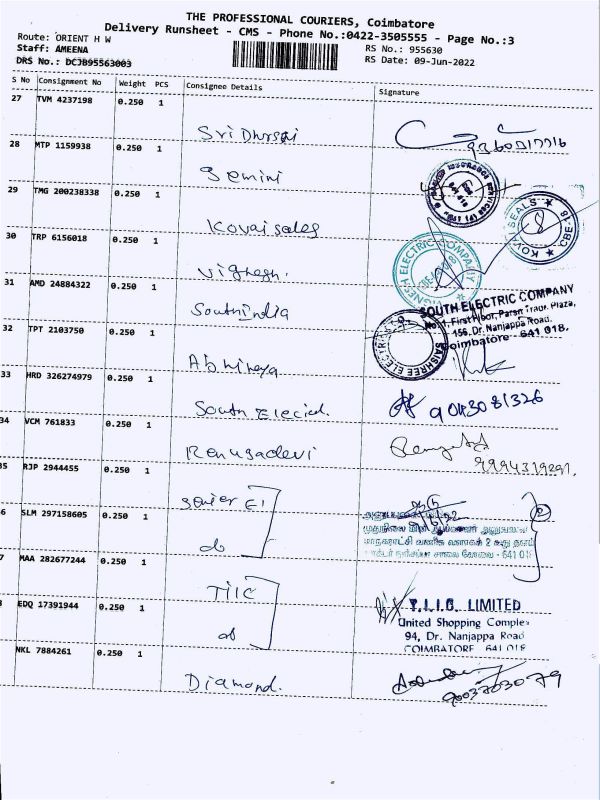 THE PROFESSIONAL COURIERS, Coimbatore
Delivery Runsheet - CMS - Phone No.:0422-3505555 - Page No.:3
Route: ORIENT H W
Staff: AMEENA
DRS No.: DCJB95563003
RS No.: 955630
RS Date: 09-Jun-2022
S No Consignment No Weight PCS Consignee Details Signature
27 TVM 4237198 0.250 1
Sri Dhrsai
28 MTP 1159938 0.250 1
Gemini
29 TMG 200238338 0.250 1
Kovai sales
KOVAI SEALS
30 TRP 6156018 0.250 1
Vighesh.
ELECTRIC COMPANY
31 AMD 24884322 0.250 1
South India
SOUTH ELECTRIC COMPANY
First Floor, Plaza,
156, Dr. Nanjappa Road,
Coimbatore - 641 018.
32 TPT 2103750 0.250 1
Abhinaya
SAISHREE ELECTRIC
33 HRD 326274979 0.250 1
South Elecical.
9043081326
34 VCM 761833 0.250 1
Renugadevi
9994319291.
35 RJP 2944455 0.250 1
36 SLM 297158605 0.250 1
do
MAA 282677244 0.250 1
TIIC
EDQ 17391944 0.250 1
do
T.I.I.C. LIMITED
United Shopping Complex
94, Dr. Nanjappa Road
COIMBATORE 641 018
NKL 7884261 0.250 1
Diamond.
9003703079